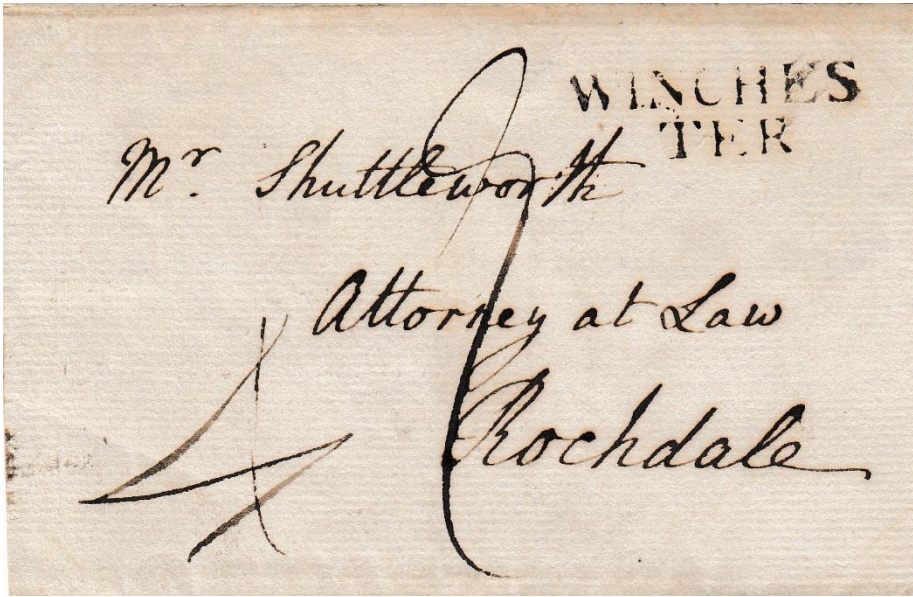 WINCHES
TER
Mr. Shuttleworth
Attorney at Law
Rochdale
4